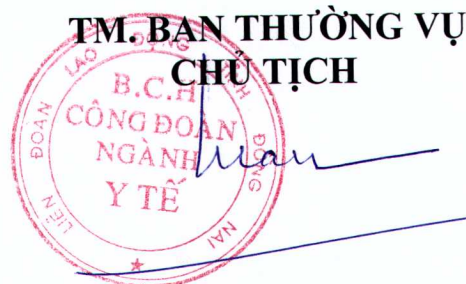 TM. BAN THƯỜNG VỤ
CHỦ TỊCH
LIÊN ĐOÀN LAO ĐỘNG TỈNH ĐỒNG NAI
B.C.H
CÔNG ĐOÀN
NGÀNH
Y TẾ